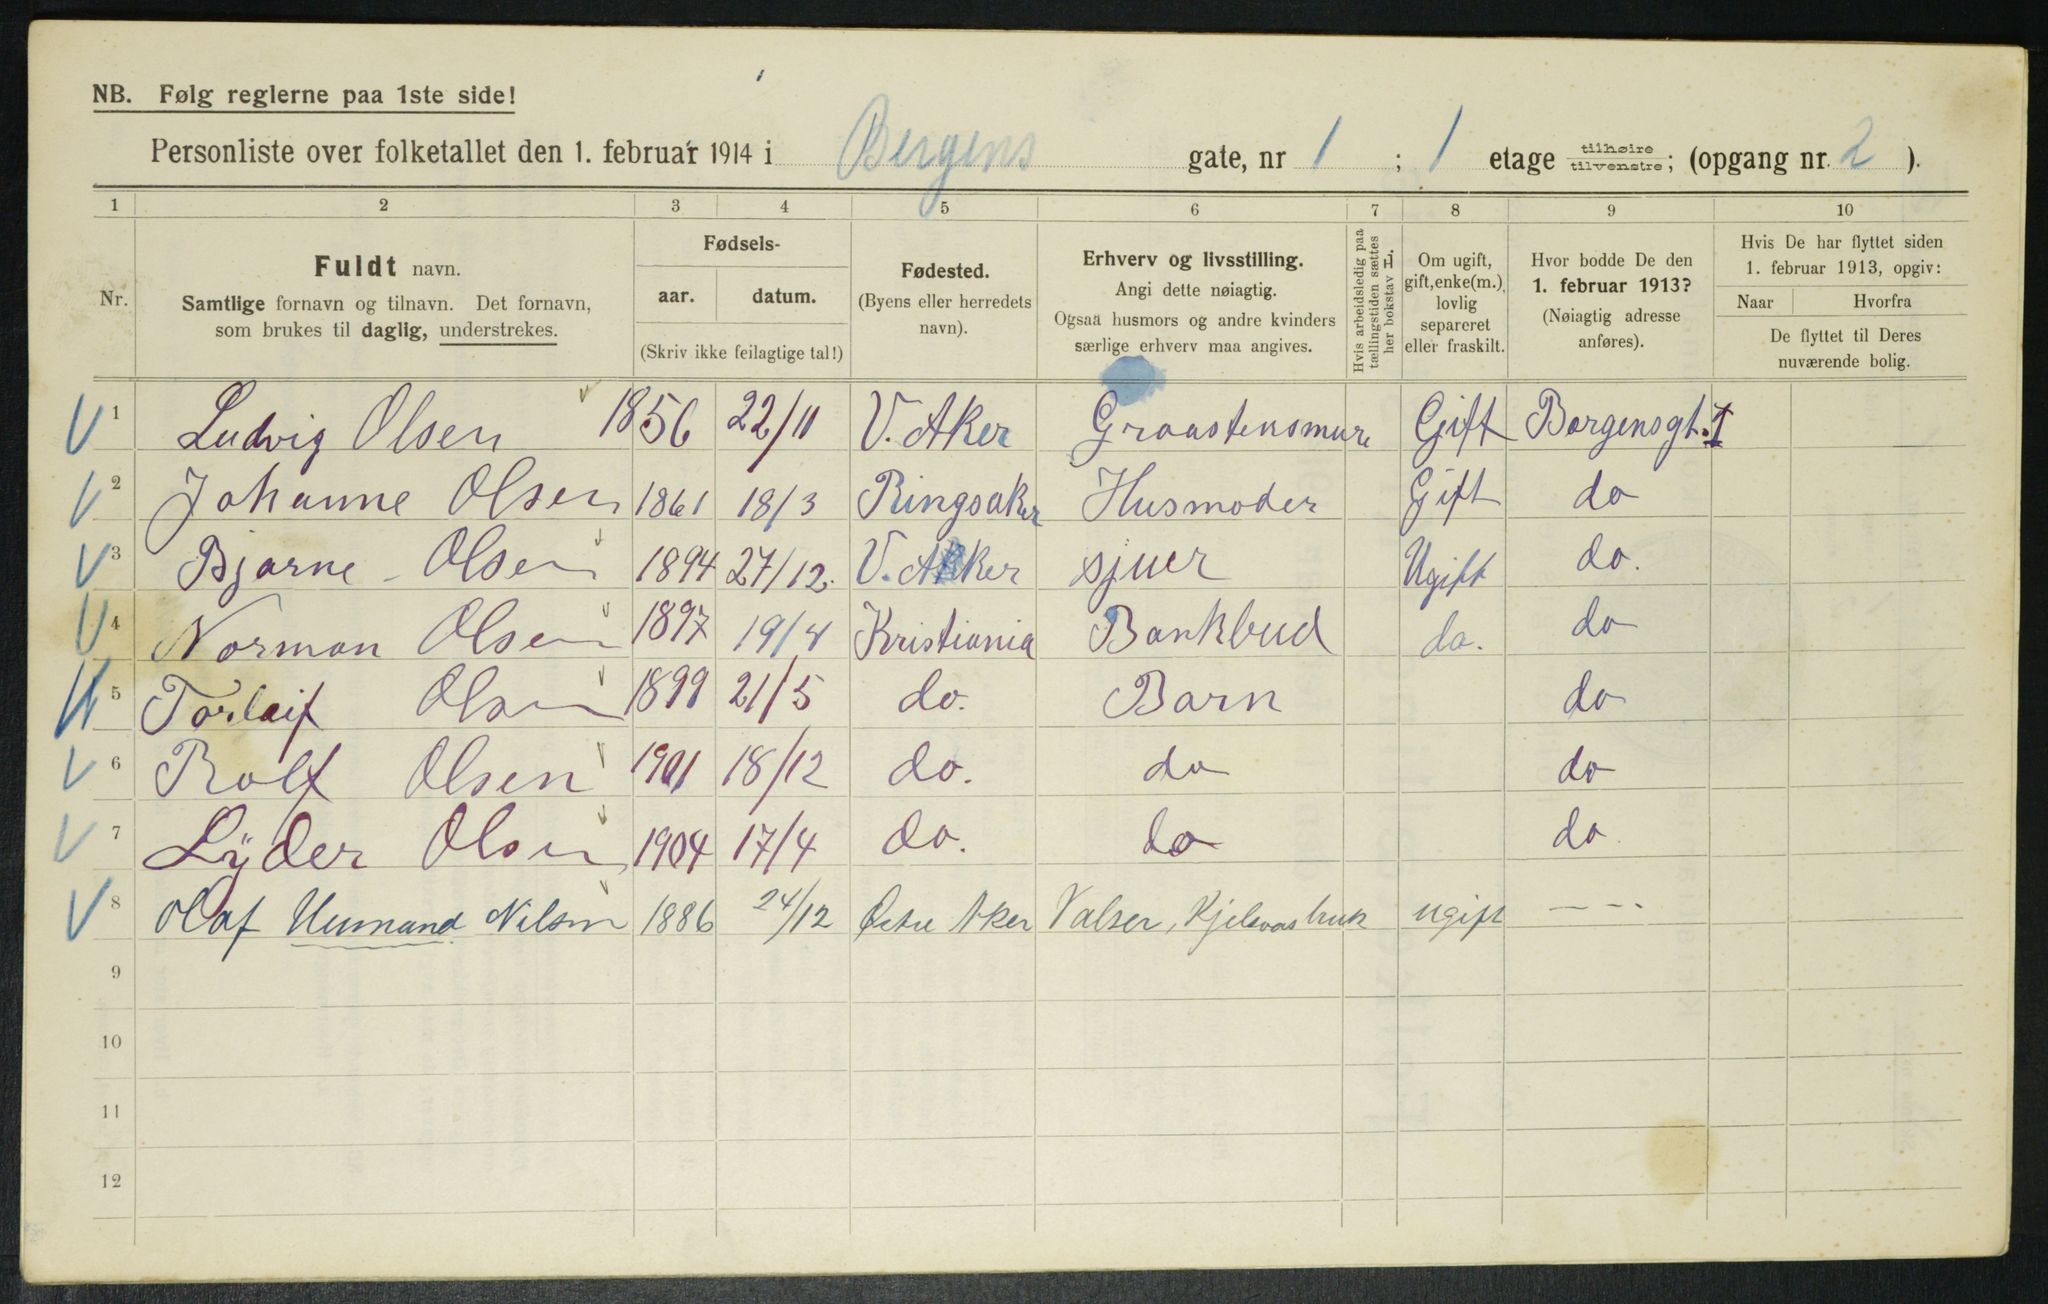 NB. Følg reglerne paa 1ste side!
Personliste over folketallet den 1. februar 1914 i Bergens gate, nr 1 ; 1 etage tilhøire tilvenstre ; (opgang nr. 2 ).
1 2 3 4 5 6 7 8 9 10
Nr.
Fuldt navn.
Samtlige fornavn og tilnavn. Det fornavn,
som brukes til daglig, understrekes.
Fødsels-
aar. datum.
(Skriv ikke feilagtige tal!)
Fødested.
(Byens eller herredets
navn).
Erhverv og livsstilling.
Angi dette nøiagtig.
Ogsaa husmors og andre kvinders
særlige erhverv maa angives.
Hvis arbeidsledig paa
tællingstiden sættes
her bokstav L.
Om ugift,
gift, enke(m.),
lovlig
separeret
eller fraskilt.
Hvor bodde De den
1. februar 1913?
(Nøiagtig adresse
anføres).
Hvis De har flyttet siden
1. februar 1913, opgiv:
Naar Hvorfra
De flyttet til Deres
nuværende bolig.
1 Ludvig Olsen 1856 22/11 V. Aker Graastensmure Gift Bergensgt. 1
2 Johanne Olsen 1861 18/3 Ringsaker Husmoder Gift do
3 Bjarne Olsen 1894 27/12. V. Aker sjuer Ugift do.
4 Norman Olsen 1897 19/4 Kristiania Bankbud do. do
5 Torleif Olsen 1899 21/5 do. Barn do
6 Rolf Olsen 1901 18/12 do. do do
7 Lyder Olsen 1904 17/4 do. do do
8 Olaf Nilsen 1886 24/12 Østre Aker Valser, ugift — - -
9
10
11
12